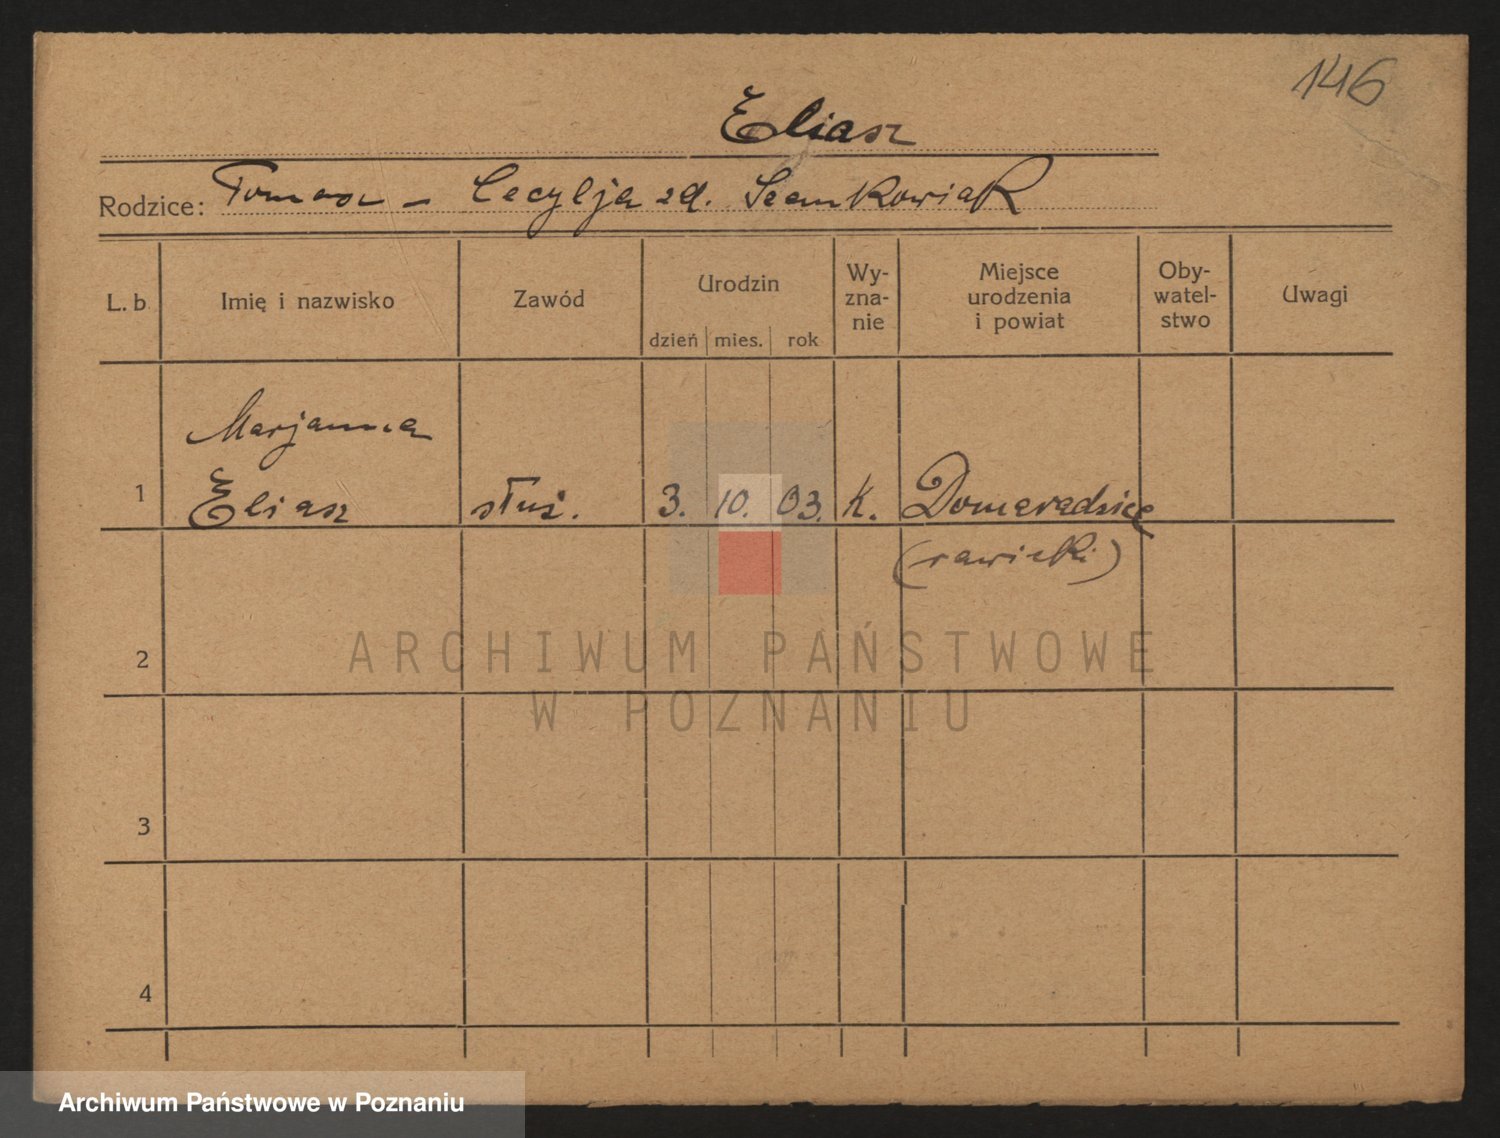 146
Eliasz
Rodzice: Tomasz – Cecylja zd. Szamkowiak
L. b. Imię i nazwisko Zawód Urodzin dzień mies. rok Wy-zna-nie Miejsce urodzenia i powiat Oby-watel-stwo Uwagi
Marjanna
1 Eliasz służ. 3. 10. 03. k. Domaradzice
(rawicki)
2
ARCHIWUM PAŃSTWOWE
W POZNANIU
3
4
Archiwum Państwowe w Poznaniu